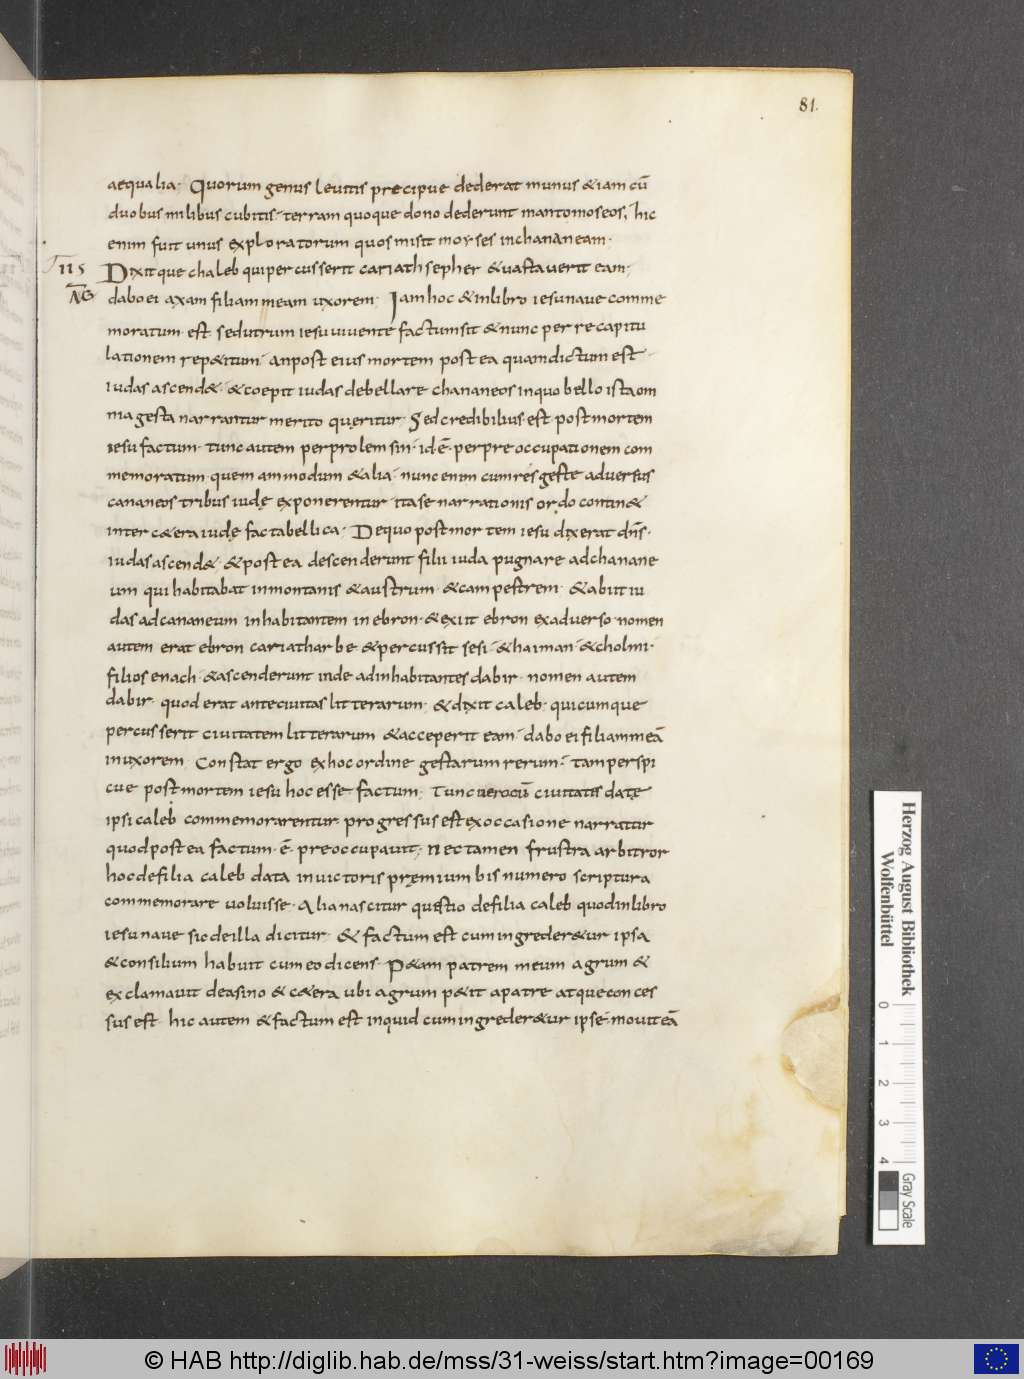 81.
aequalia· Quorum genus leuitis precipue dederat munus & iam cū
duobus milibus cubitis· terram quoque dono dederunt montomoseos, hic
enim fuit unus exploratorum quos misit moyses inchananeam·
Dixitque chaleb qui percusserit cariathsepher & uastauerit eam;
AG
dabo ei axam filiam meam uxorem· Iam hoc & inlibro iesunaue comme
moratum· est sedutrum iesu uiuente factum sit & nunc per recapitu
lationem rep&itum· an post eius mortem postea quam dictum est·
iudas ascend&· & coepit iudas debellare chananeos inquo bello ista om
nia gesta narrantur merito queritur· Sed credibilius· est post mortem
iesu factum· tunc autem per prolemsin· id ē· per preoccupationem com
memoratum· quem ammodum & alia· nunc enim cum res geste aduersus
cananeos tribus iudę exponerentur ita se narrationis ordo contin&
inter c&era iudę facta bellica· De quo post mortem iesu dixerat dn̄s·
iudas ascend&· & postea descenderunt filii iuda pugnare ad chanane
um qui habitabat in montanis & austrum· & campestrem· & abiit iu
das ad cananeum inhabitantem in ebron· & exiit ebron exaduerso· nomen
autem erat ebron cariatharbe & percussit sesi· & haiman· & cholmi·
filios enach· & ascenderunt inde ad inhabitantes dabir· nomen autem
dabir· quod erat ante ciuitas litterarum· & dixit caleb· quicumque
percusserit ciuitatem litterarum & acceperit eam· dabo ei filiam meā
in uxorem Constat ergo ex hoc ordine gestarum rerum· tam perspi
cue post mortem iesu hoc esse factum; Tunc uero cū ciuitates datę
ipsi caleb commemorarentur progressus est ex occasione narratur
quod postea factum· ē· preoccupauit; Nec tamen frustra arbitror
hoc de filia caleb data in uictoris pręmium bis numero scriptura
commemorare uoluisse· Alia nascitur questio de filia caleb quod in libro
iesu naue sic de illa dicitur· & factum est cum ingreder&ur ipsa
& consilium habuit cum eo dicens· P&am patrem meum agrum &
exclamauit de asino & c&era ubi agrum p&it a patre atque conces
sus est· hic autem & factum est inquid cum ingreder&ur ipse· mouit eā
Herzog August Bibliothek
Wolfenbüttel
0 1 2 3 4
Gray Scale
© HAB http://diglib.hab.de/mss/31-weiss/start.htm?image=00169